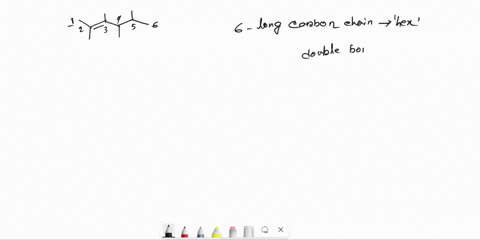 1 2 3 4 5 6
6 - long carbon chain → 'hex'
double bo